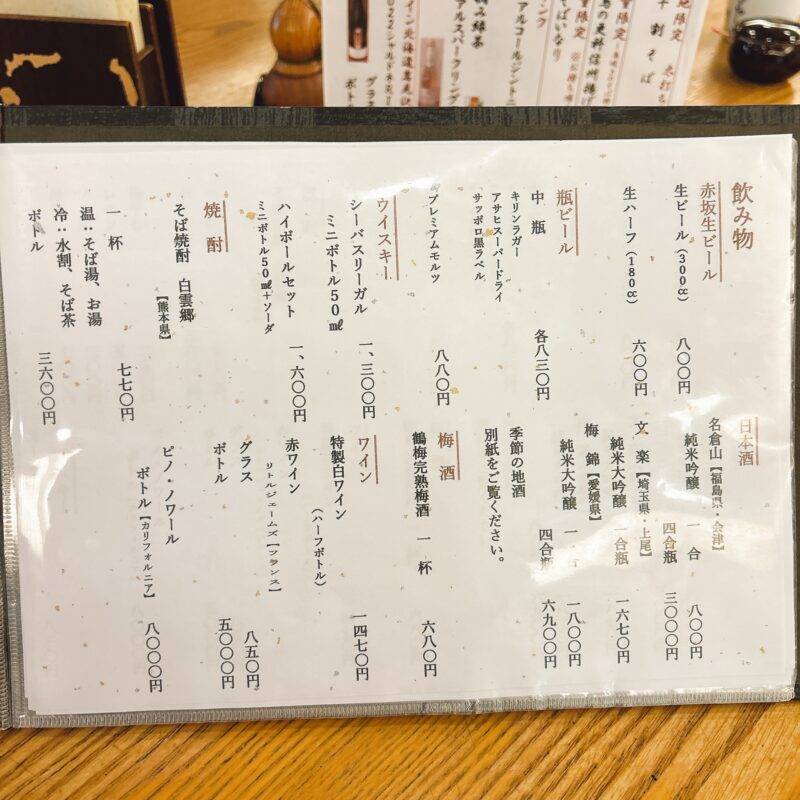 飲み物
赤坂生ビール
生ビール（300cc）　八〇〇円
生ハーフ（180cc）　六〇〇円
瓶ビール
中瓶　各八三〇円
キリンラガー
アサヒスーパードライ
サッポロ黒ラベル
プレミアムモルツ　八八〇円
ウイスキー
シーバスリーガル
ミニボトル50㎖　一、三〇〇円
ハイボールセット　一、六〇〇円
ミニボトル50㎖＋ソーダ
焼酎
そば焼酎　白雲郷
【熊本県】
一杯　七七〇円
温：そば湯、お湯
冷：水割、そば茶
ボトル　三六〇〇円
日本酒
名倉山【福島県・会津】
純米吟醸　一合　八〇〇円
四合瓶　三〇〇〇円
文楽【埼玉県・上尾】
純米大吟醸　一合瓶　一六七〇円
梅錦【愛媛県】
純米大吟醸　一合　一八〇〇円
四合瓶　六九〇〇円
季節の地酒
別紙をご覧ください。
梅酒
鶴梅完熟梅酒　一杯　六八〇円
ワイン
特製白ワイン　一四七〇円
（ハーフボトル）
赤ワイン
リトルジェームズ【フランス】
グラス　八五〇円
ボトル　五〇〇〇円
ピノ・ノワール
ボトル【カリフォルニア】　八〇〇〇円